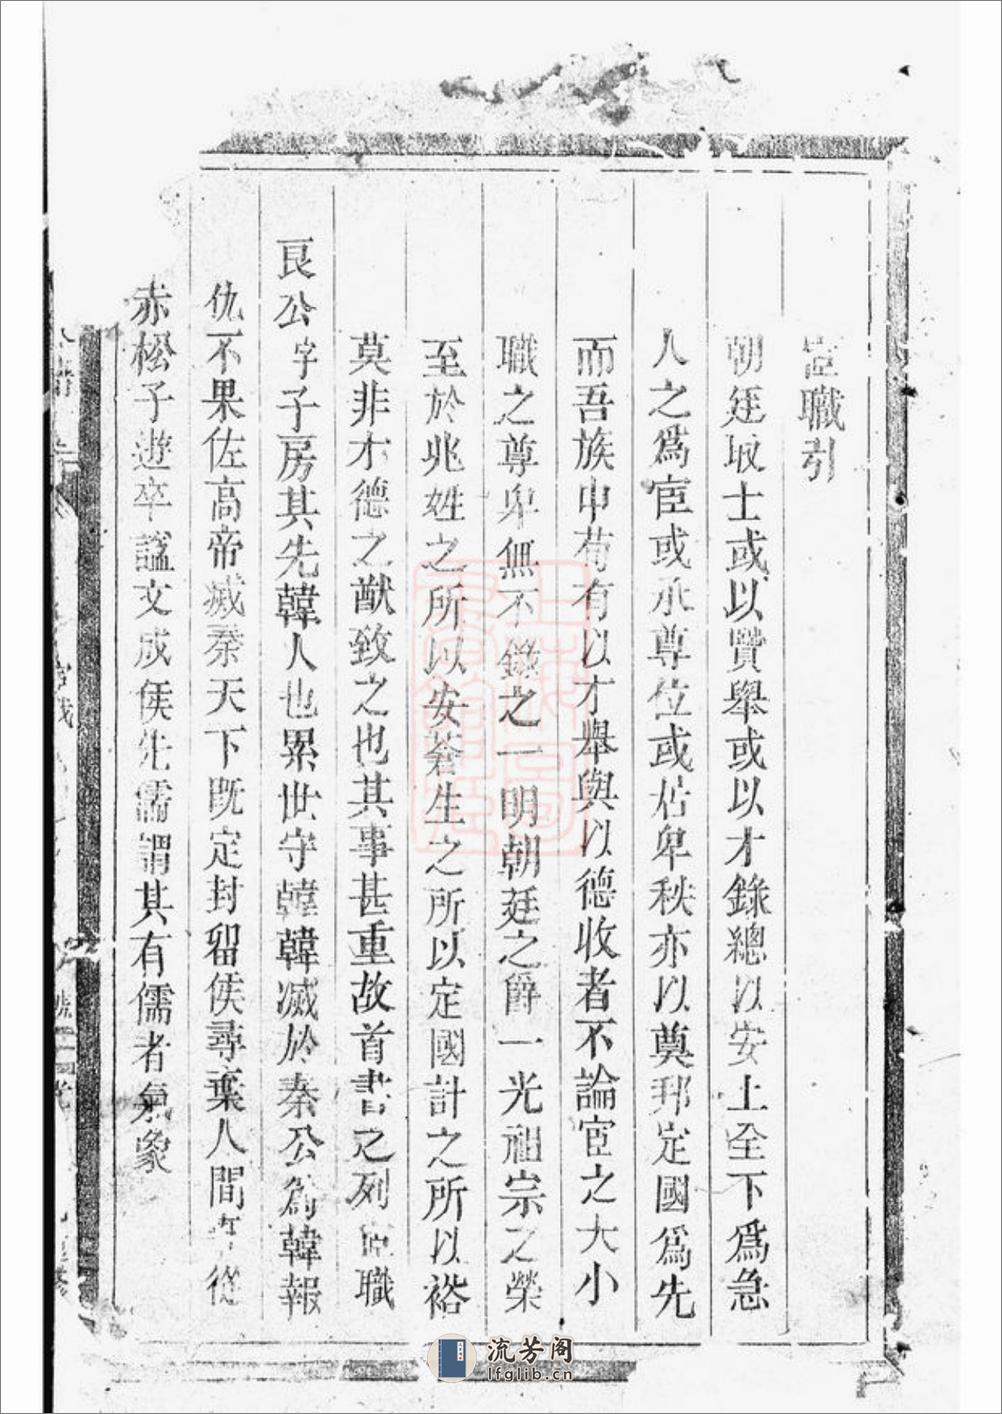 宦職引
朝廷取士或以賢舉或以才錄總以安上全下爲急
人之爲宦或承尊位或居卑秩亦以奠邦定國爲先
而吾族中苟有以才舉與以德收者不論宦之大小
職之尊卑無不錄之一明朝廷之爵一光祖宗之榮
至於兆姓之所以安蒼生之所以定國計之所以裕
莫非才德之猷致之也其事甚重故首書之列宦職
良公字子房其先韓人也累世守韓韓滅於秦公爲韓報
仇不果佐高帝滅秦天下既定封留侯尋棄人間事從
赤松子遊卒諡文成侯先儒謂其有儒者氣象
流芳阁
lfglib.cn